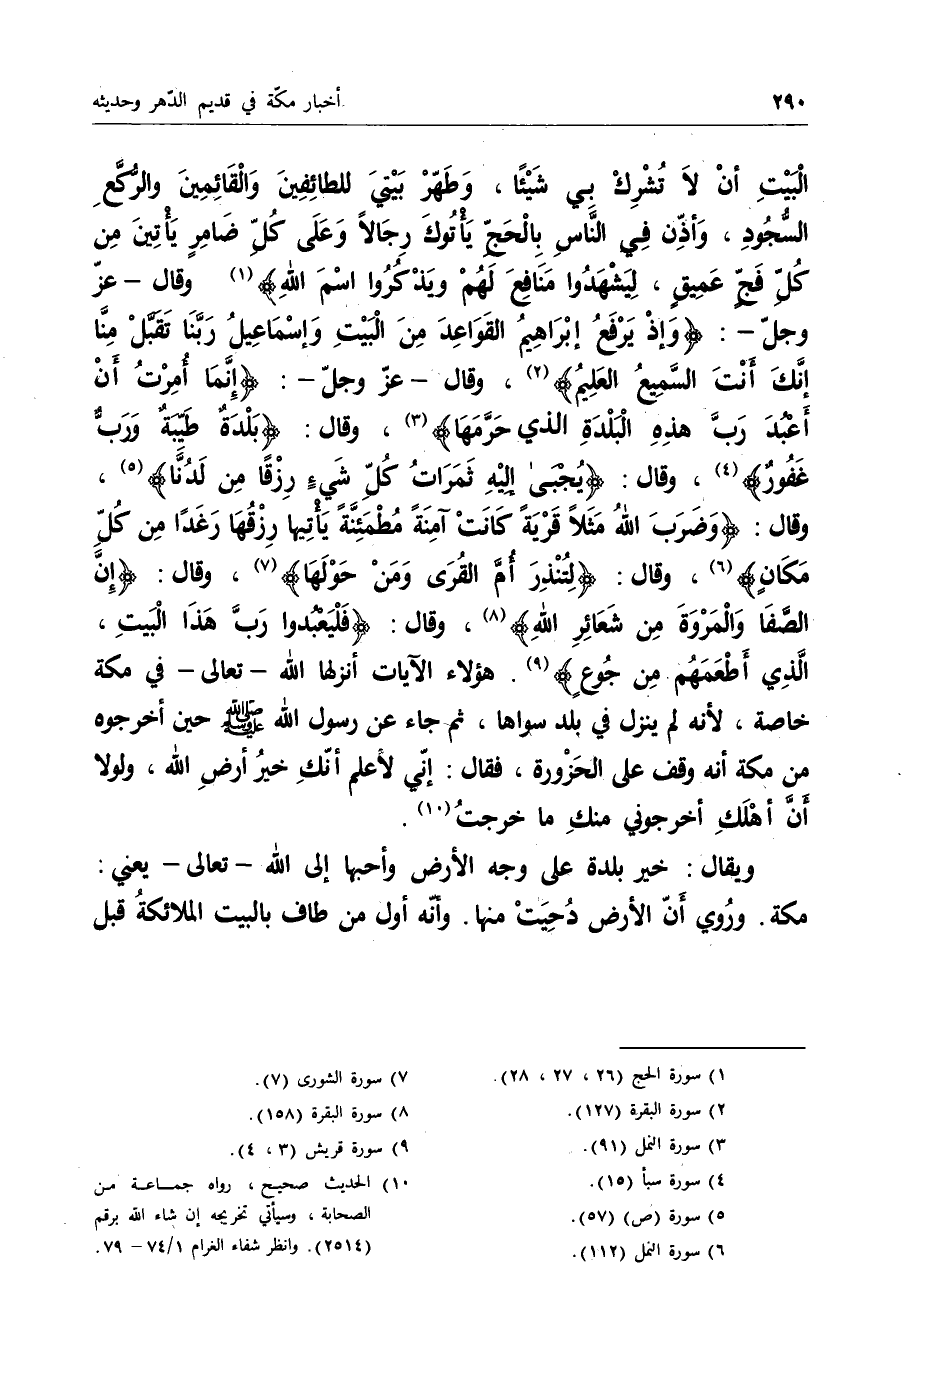 ٢٩٠
أخبار مكّة في قديم الدّهر وحديثه
الْبَيْتِ أنْ لاَ تُشْرِكْ بِي شَيْئًا ، وَطَهِّرْ بَيْتِيَ للطائِفِينَ وَالْقَائِمِينَ والرُّكَّعِ
السُّجُودِ ، وَأذِّن فِي النَّاسِ بِالْحَجِّ يَأْتُوكَ رِجَالاً وَعَلَى كُلِّ ضَامِرٍ يَأْتِينَ مِن
كُلِّ فَجٍّ عَمِيقٍ ، لِيَشْهَدُوا مَنَافِعَ لَهُمْ ويَذْكُرُوا اسْمَ اللهِ﴾ (١) وقال – عزّ
وجلّ – : ﴿وَإذْ يَرْفَعُ إبْرَاهِيمُ القَوَاعِدَ مِنَ الْبَيْتِ وَإسْمَاعِيلُ رَبَّنَا تَقَبَّلْ مِنَّا
إنَّكَ أنْتَ السَّمِيعُ العَلِيمُ﴾ (٢) ، وقال – عزّ وجلّ – : ﴿إنَّمَا أُمِرْتُ أنْ
أَعْبُدَ رَبَّ هذِهِ الْبَلْدَةِ الذي حَرَّمَهَا﴾ (٣) ، وقال : ﴿بَلْدَةٌ طَيِّبَةٌ وَرَبٌّ
غَفُورٌ﴾ (٤) ، وقال : ﴿يُجْبَىٰ إلَيْهِ ثَمَرَاتُ كُلِّ شَيءٍ رِزْقًا مِن لَدُنَّا﴾ (٥) ،
وقال : ﴿وَضَرَبَ اللهُ مَثَلاً قَرْيَةً كَانَتْ آمِنَةً مُطْمَئِنَّةً يَأتِيها رِزْقُهَا رَغَدًا مِن كُلِّ
مَكَانٍ﴾ (٦) ، وقال : ﴿لِتُنْذِرَ أُمَّ القُرَى وَمَنْ حَوْلَهَا﴾ (٧) ، وقال : ﴿إنَّ
الصَّفَا وَالْمَرْوَةَ مِن شَعَائِرِ اللهِ﴾ (٨) ، وقال : ﴿فَلْيَعْبُدوا رَبَّ هَذَا الْبَيتِ ،
الَّذِي أطْعَمَهُم مِن جُوعٍ﴾ (٩) . هؤلاء الآيات أنزلها الله – تعالى – في مكة
خاصة ، لأنه لم ينزل في بلد سواها ، ثم جاء عن رسول الله ﷺ حين أخرجوه
من مكة أنه وقف على الحَزْورة ، فقال : إنّي لأعلم أنّكِ خيرُ أرضِ الله ، ولولا
أَنَّ أهْلَكِ أخرجوني منكِ ما خرجتُ (١٠) .
ويقال : خير بلدة على وجه الأرض وأحبها إلى الله – تعالى – يعني :
مكة . ورُوي أَنّ الأرض دُحِيَتْ منها. وأنّه أول من طاف بالبيت الملائكةُ قبل
١) سورة الحج (٢٦ ، ٢٧ ، ٢٨).
٢) سورة البقرة (١٢٧).
٣) سورة النمل (٩١).
٤) سورة سبأ (١٥).
٥) سورة (ص) (٥٧).
٦) سورة النمل (١١٢).
٧) سورة الشورى (٧).
٨) سورة البقرة (١٥٨).
٩) سورة قريش (٣ ، ٤).
١٠) الحديث صحيح ، رواه جماعة من
الصحابة ، وسيأتي تخريجه إن شاء الله برقم
(٢٥١٤). وانظر شفاء الغرام ٧٤/١ – ٧٩.